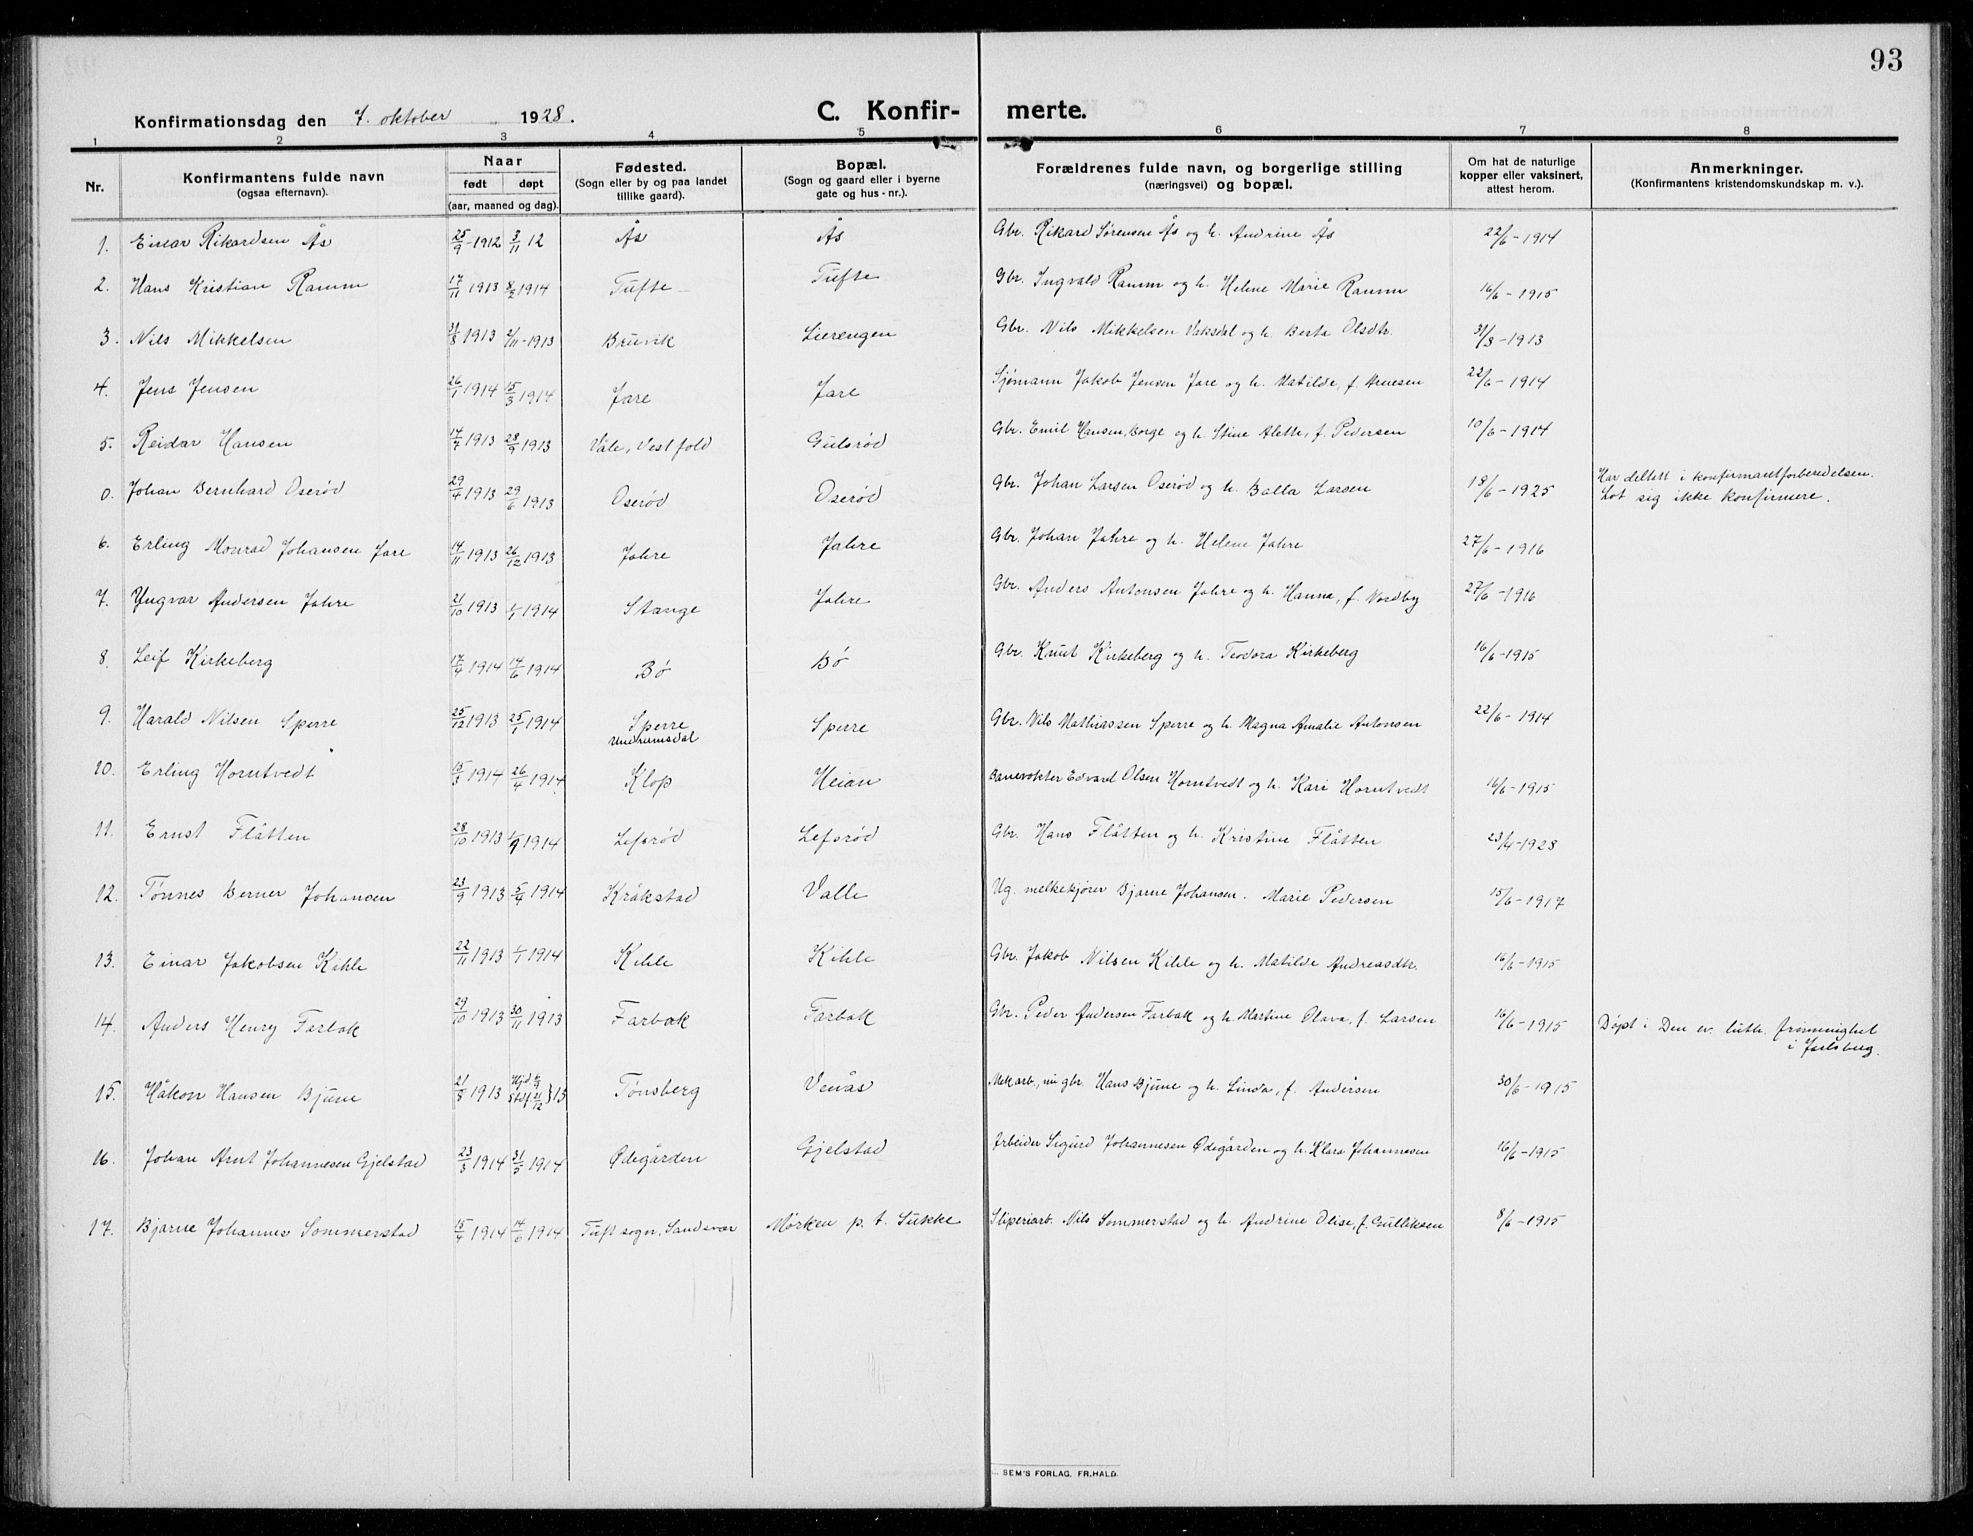 93
Konfirmationsdag den 7. oktober 1928.
C. Konfir-
merte.
1 2 3 4 5 6 7 8
Nr.
Konfirmantens fulde navn
(ogsaa efternavn).
Naar
født døpt
(aar, maaned og dag).
Fødested.
(Sogn eller by og paa landet
tillike gaard).
Bopæl.
(Sogn og gaard eller i byerne
gate og hus-nr.).
Forældrenes fulde navn, og borgerlige stilling
(næringsvei) og bopæl.
Om hat de naturlige
kopper eller vaksinert,
attest herom.
Anmerkninger.
(Konfirmantens kristendomskundskap m. v.).
1. Einar Rikardsen Ås 25/9-1912 3/11 12 Ås Ås Gbr. Rikard Sørensen Ås og h. Andrine Ås 22/6-1914
2. Hans Kristian Ramm 17/11 1913 8/2 1914 Tufte Tufte Gbr. Ingvald Ramm og h. Helene Marie Ramm 16/6-1915
3. Nils Mikkelsen 31/8 1913 2/11-1913 Bruvik Lierengen Gbr. Nils Mikkelsen Vaksdal og h. Berta Olsdtr. 31/3-1913
4. Jens Jensen 26/1 1914 15/3 1914 Jare Jare Sjømann Jakob Jensen Jare og h. Matilde, f. Arnesen 22/6-1914
5. Reidar Hansen 14/7 1913 28/9 1913 Våle, Vestfold Gulsrød Gbr. Emil Hansen, Borge og h. Stine Aleth, f. Pedersen 10/6-1914
0. Johan Bernhard Oserød 29/4 1913 29/6 1913 Oserød Oserød Gbr. Johan Larsen Oserød og h. Balla Larsen 18/6-1925 Har deltatt i konfirmantforberedelsen.
Lot sig ikke konfirmere.
6. Erling Monrad Johansen Jare 14/11 1913 26/12 1913 Jahre Jahre Gbr. Johan Jahre og h. Helene Jahre 27/6-1916
7. Yngvar Andersen Jahre 21/10 1913 1/1 1914 Stange Jahre Gbr. Anders Antonsen Jahre og h. Hanna, f. Nordby 27/6-1916
8. Leif Kirkeberg 17/4 1914 14/6 1914 Bø Bø Gbr. Knut Kirkeberg og h. Teodora Kirkeberg 16/6-1915
9. Harald Nilsen Sperre 25/12 1913 25/1 1914 Sperre Sperre Gbr. Nils Mathiassen Sperre og h. Magna Amalie Antonsen 22/6-1914
Undrumsdal
10. Erling Horntvedt 15/3 1914 26/4 1914 Klop Heian Banevokter Edvard Olsen Horntvedt og h. Kari Horntvedt 16/6-1915
11. Ernst Flåtten 28/10 1913 1/1 1914 Lefsrød Lefsrød Gbr. Hans Flåtten og h. Kristine Flåtten 23/4-1928
12. Tønnes Berner Johansen 23/9 1913 5/4 1914 Kråkstad Valle Ug. melkekjører Bjarne Johansen. Marie Pedersen 15/6-1917
13. Einar Jakobsen Kihle 22/11 1913 1/1 1914 Kihle Kihle Gbr. Jakob Nilsen Kihle og h. Matilde Andreasdtr. 16/6-1915
14. Anders Henry Farbok 29/10 1913 30/11 1913 Farbok Farbak Gbr. Peder Andersen Farbak og h. Martine Olava, f. Larsen 16/6-1915 Døpt i Den ev. luth. frimenighet
i Jarlsberg.
15. Håkon Hansen Bjune 21/8 1913 Hjd. 6/9 Stdf. 21/12 }13 Tønsberg Venås Mek arb., nu gbr. Hans Bjune og h. Linda, f. Andersen 30/6-1915
16. Johan Arnt Johannesen Gjelstad 23/3 1914 31/5 1914 Ødegården Gjelstad Arbeider Sigurd Johannesen Ødegården og h. Klara Johannesen 16/6-1915
17. Bjarne Johannes Sommerstad 15/4 1914 14/6 1914 Tuft sogn, Sandsvær Mørken p. t. Sukke Sliperiarb. Nils Sommerstad og h. Andrine Olise, f. Gulliksen 8/6-1915
SEM'S FORLAG. FR.HALD.